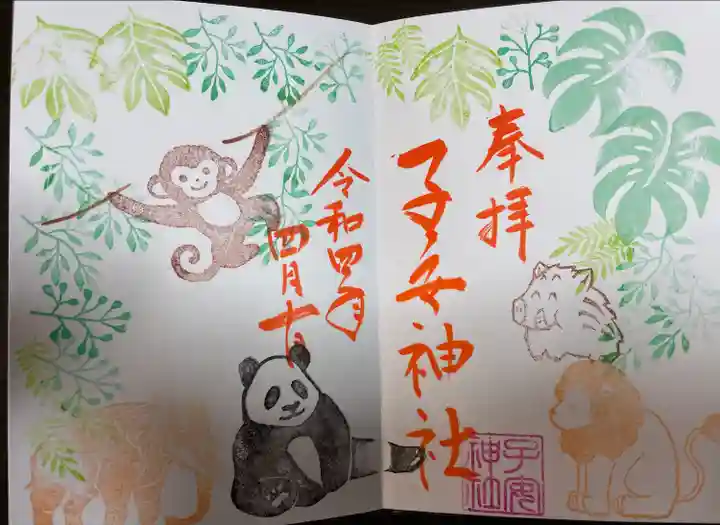 奉拝
子安神社
令和四年
四月十日
子安
神社